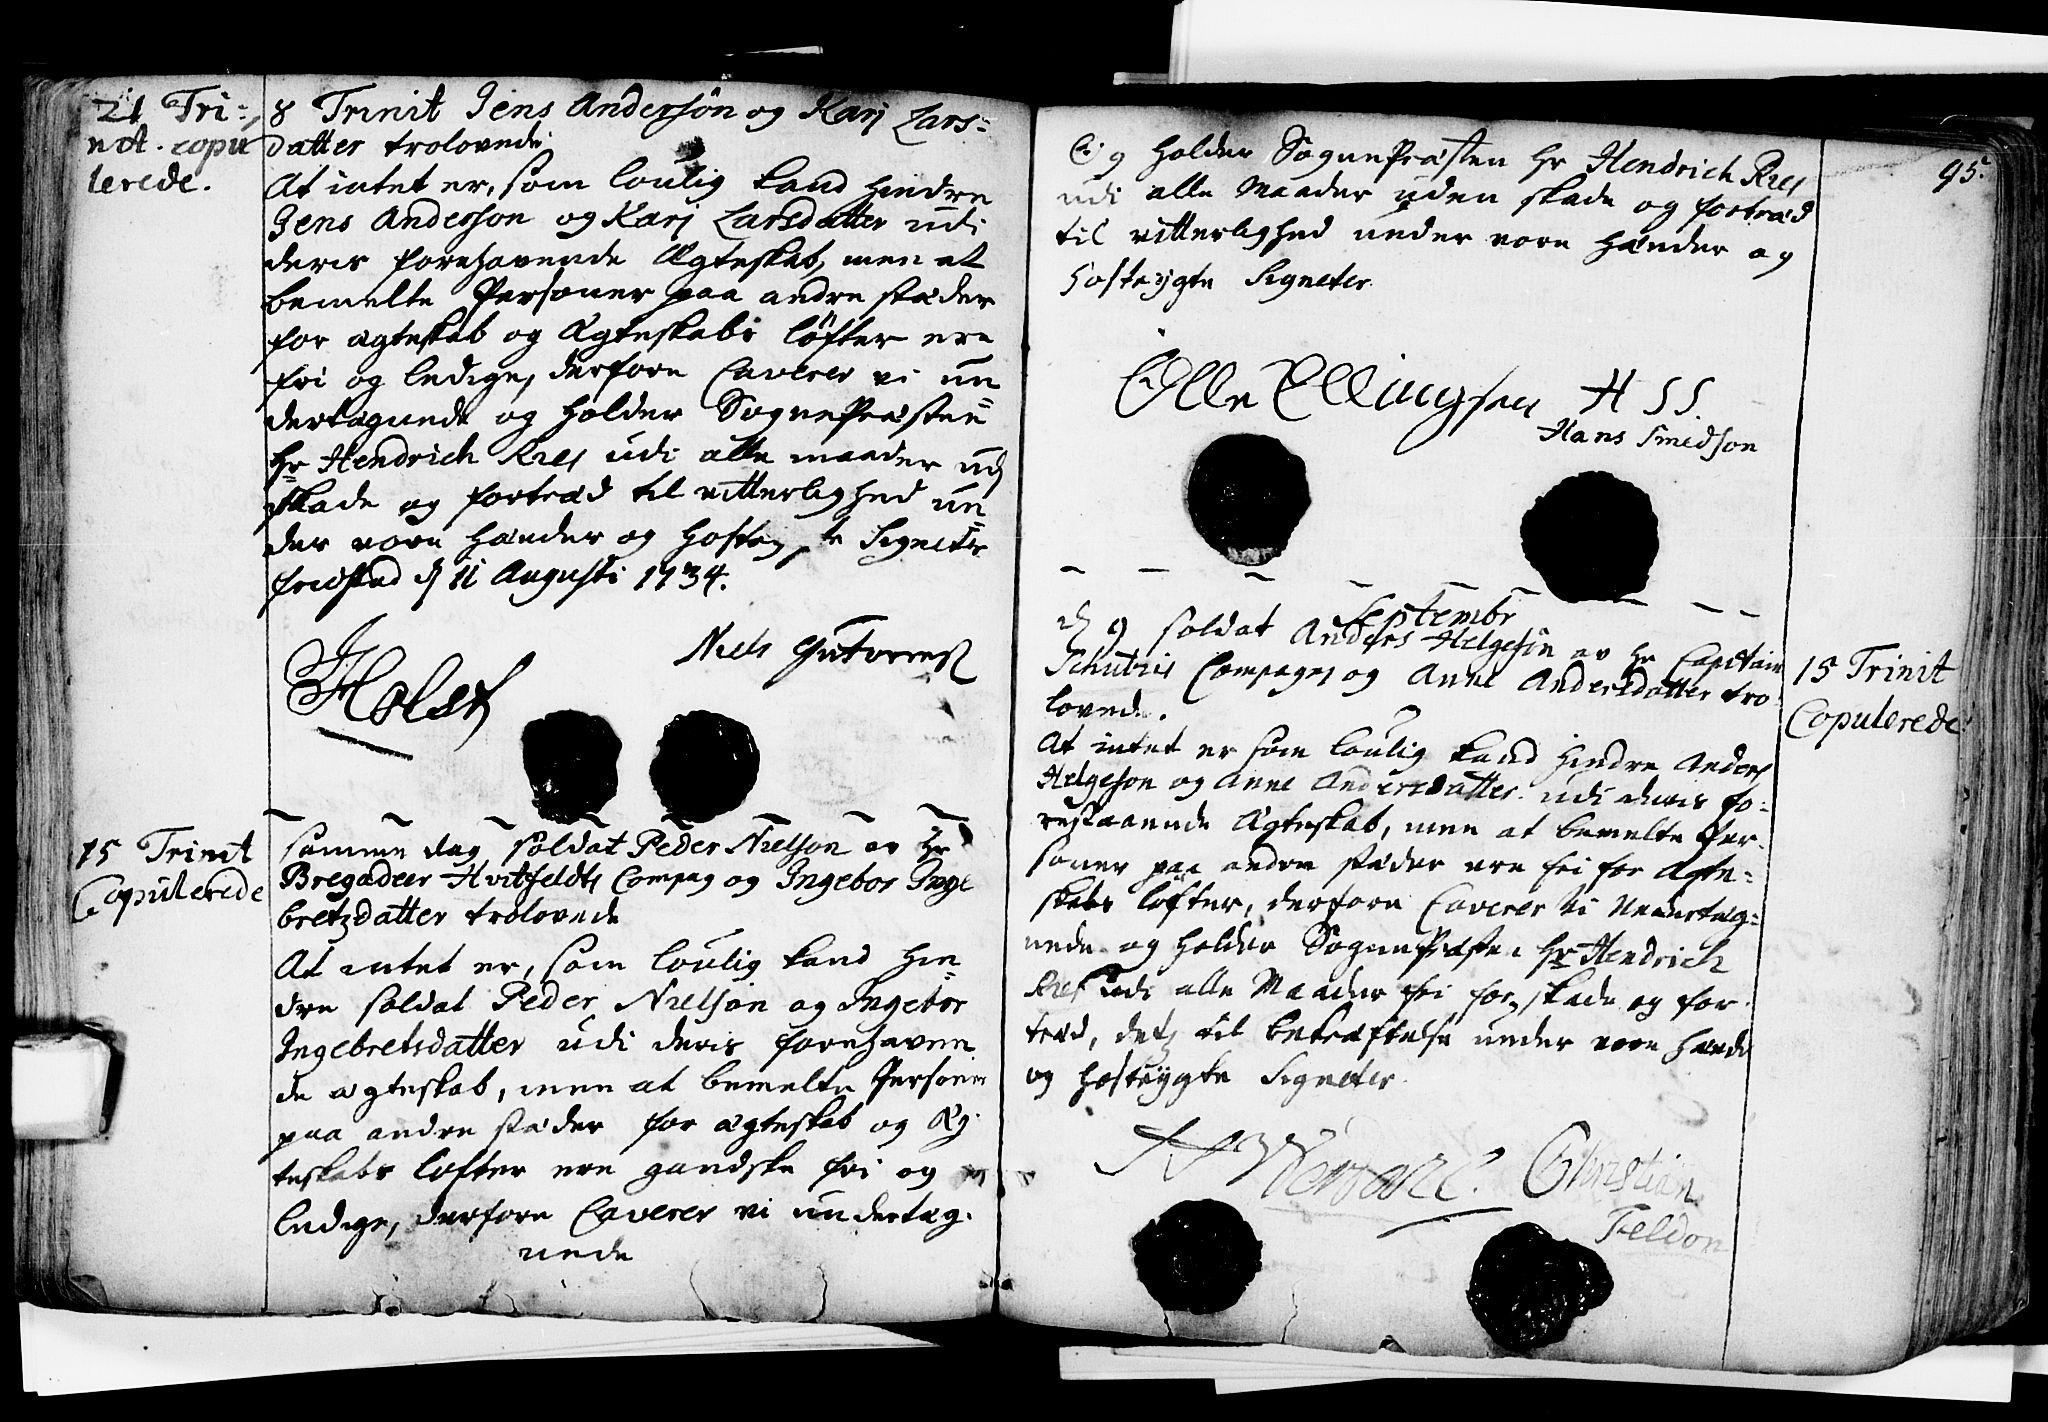 21 Tri-
nit. copu
lerede.
8 Trinit Jens Andersøn og Karj Lars-
datter trolovede
At intet er, som loulig kand hindre
Jens Anderson og Karj Larsdatter udi
deris forehavende Ægteskab, men at
bemelte Personer paa andre stæder
for ægteskab og Ægteskabs løfter ere
fri og ledige, derfore Caverer vi un
dertegnede og holder SognePræsten
Hr Hendrich Kres udi alle maader ud
skade og fortræd til vitterlighed un
der vore hænder og hostrygte Signeter
fridsted d 11 Augusti 1734.
JHolst
Niels
15 Trinit
Copulerede
samme dag soldat Peder Nielson av Hr
Bregadeer Hvitfeldts Compag og Ingebor Inge
bretzdatter trolovede
At intet er, som loulig kand hin
dre soldat Peder Nielson og Ingebor
Ingebretsdatter udi deris forehaven
de ægteskab, men at bemelte Personer
paa andre stæder for ægteskab og Æg
teskabs løfter ere gandske fri og
ledige, derfore Caverer vi undertæg-
nede
95.
Og holder SognePræsten Hr Hendrich Kres
udi alle Maader uden skade og fortræd
til vitterlighed under vore hænder og
hostrygte Signeter
Olle Ellingsen H S S.
Hans Smedson
Septembr
d 9 soldat Anders Helgeson av Hr Capitain
Schutzis Compagni og Anne Andersdatter tro
lovede.
15 Trinit
Copulerede
At intet er som loulig kand hindre Anders
Helgeson og Anne Andersdatter udi deris fo-
restaaende Ægteskab, men at bemelte Per-
soner paa andre stæder ere fri for Ægte-
skabs løfter, derfore Caverer vi Undertæg-
nede og holder SognePræsten Hr Hendrich
Kres udi alle Maader fri for skade og for-
træd, det til bekræftelse under vore hænder
og hostrygte Signeter.
Christian
Feldon